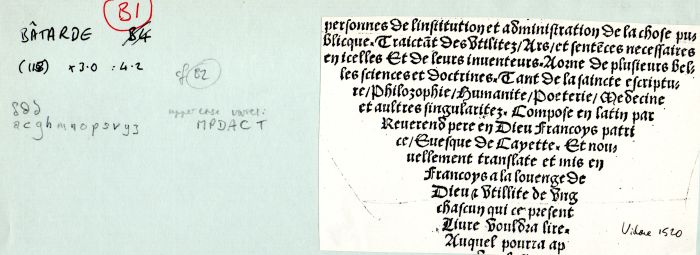 B1
BÂTARDE B4
(115) x3.0 :4.2
cf B2
acghmnopsvyz
upper case varies:
MPDACT
personnes de linstitution et administration de la chose pu
blicque. Traictãt des vtilitez/Ars/et sentẽces necessaires
en icelles Et de leurs inuenteurs. Aorne de plusieurs bel-
les sciences et doctrines. Tant de la saincte escriptu-
re/Philozophie/Humanite/Poeterie/Medecine
et aultres singularitez. Compose en latin par
Reuerend pere en Dieu Francoys patri
ce/Euesque de Cayette. Et nou-
uellement translate et mis en
Francoys a la louenge de
Dieu & vtillite de vng
chascun qui ce present
Liure vouldra lire.
Auquel pourra ap
Vidoue 1520